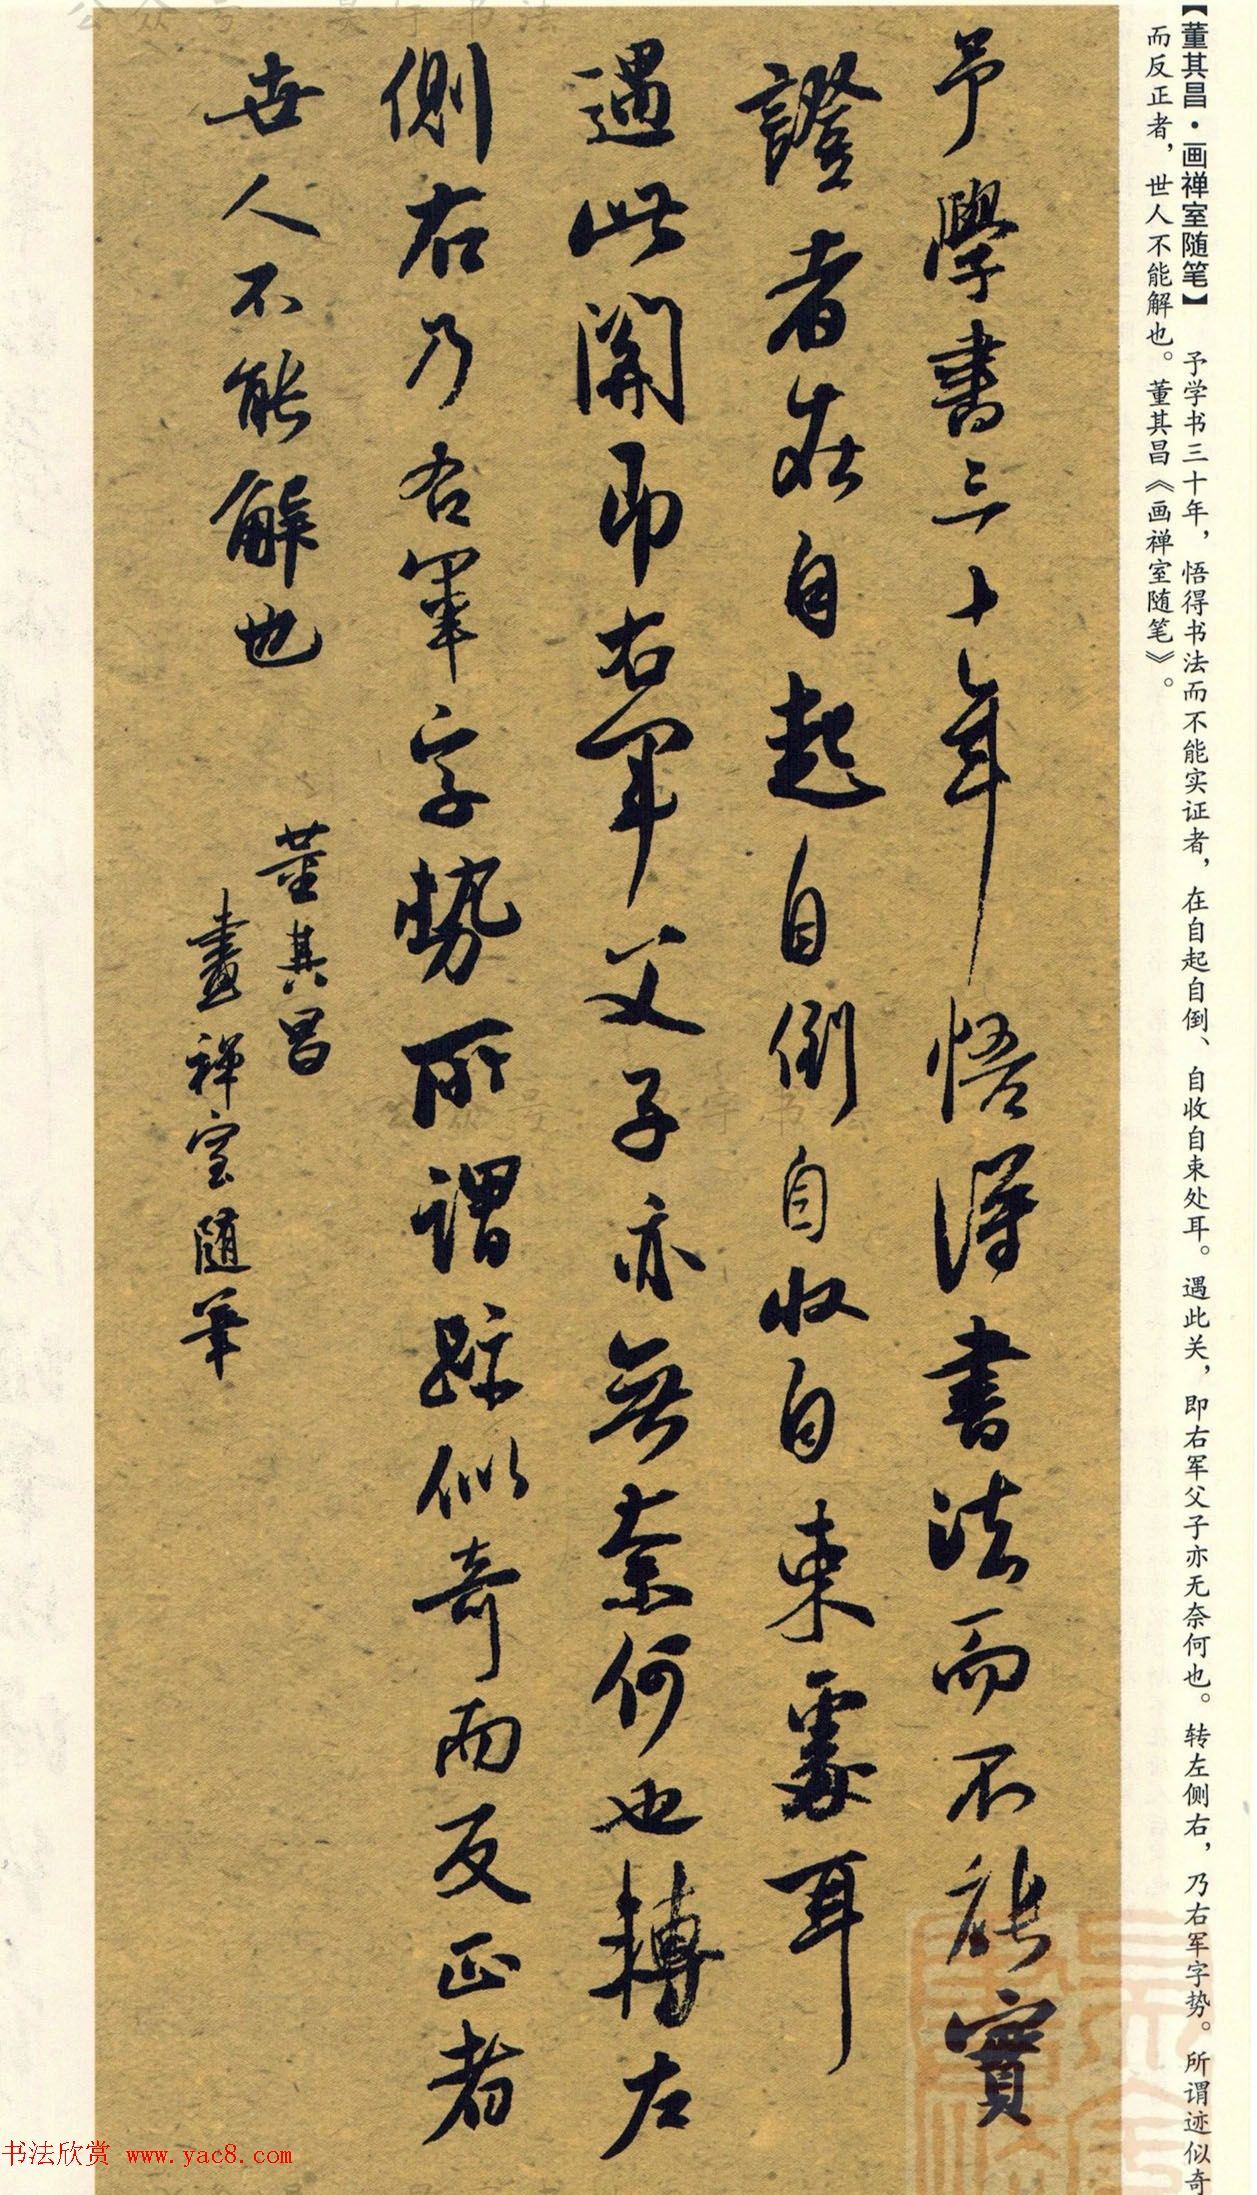 【董其昌·画禅室随笔】 予学书三十年，悟得书法而不能实证者，在自起自倒、自收自束处耳。遇此关，即右军父子亦无奈何也。转左侧右，乃右军字势。所谓迹似奇
而反正者，世人不能解也。董其昌《画禅室随笔》。
予學書三十年悟得書法而不能實
證者在自起自倒自收自束處耳
遇此關即右軍父子亦無奈何也轉左
側右乃右軍字勢所謂跡似奇而反正者
世人不能解也
董其昌
畫禅室随筆
书法欣赏 www.yac8.com